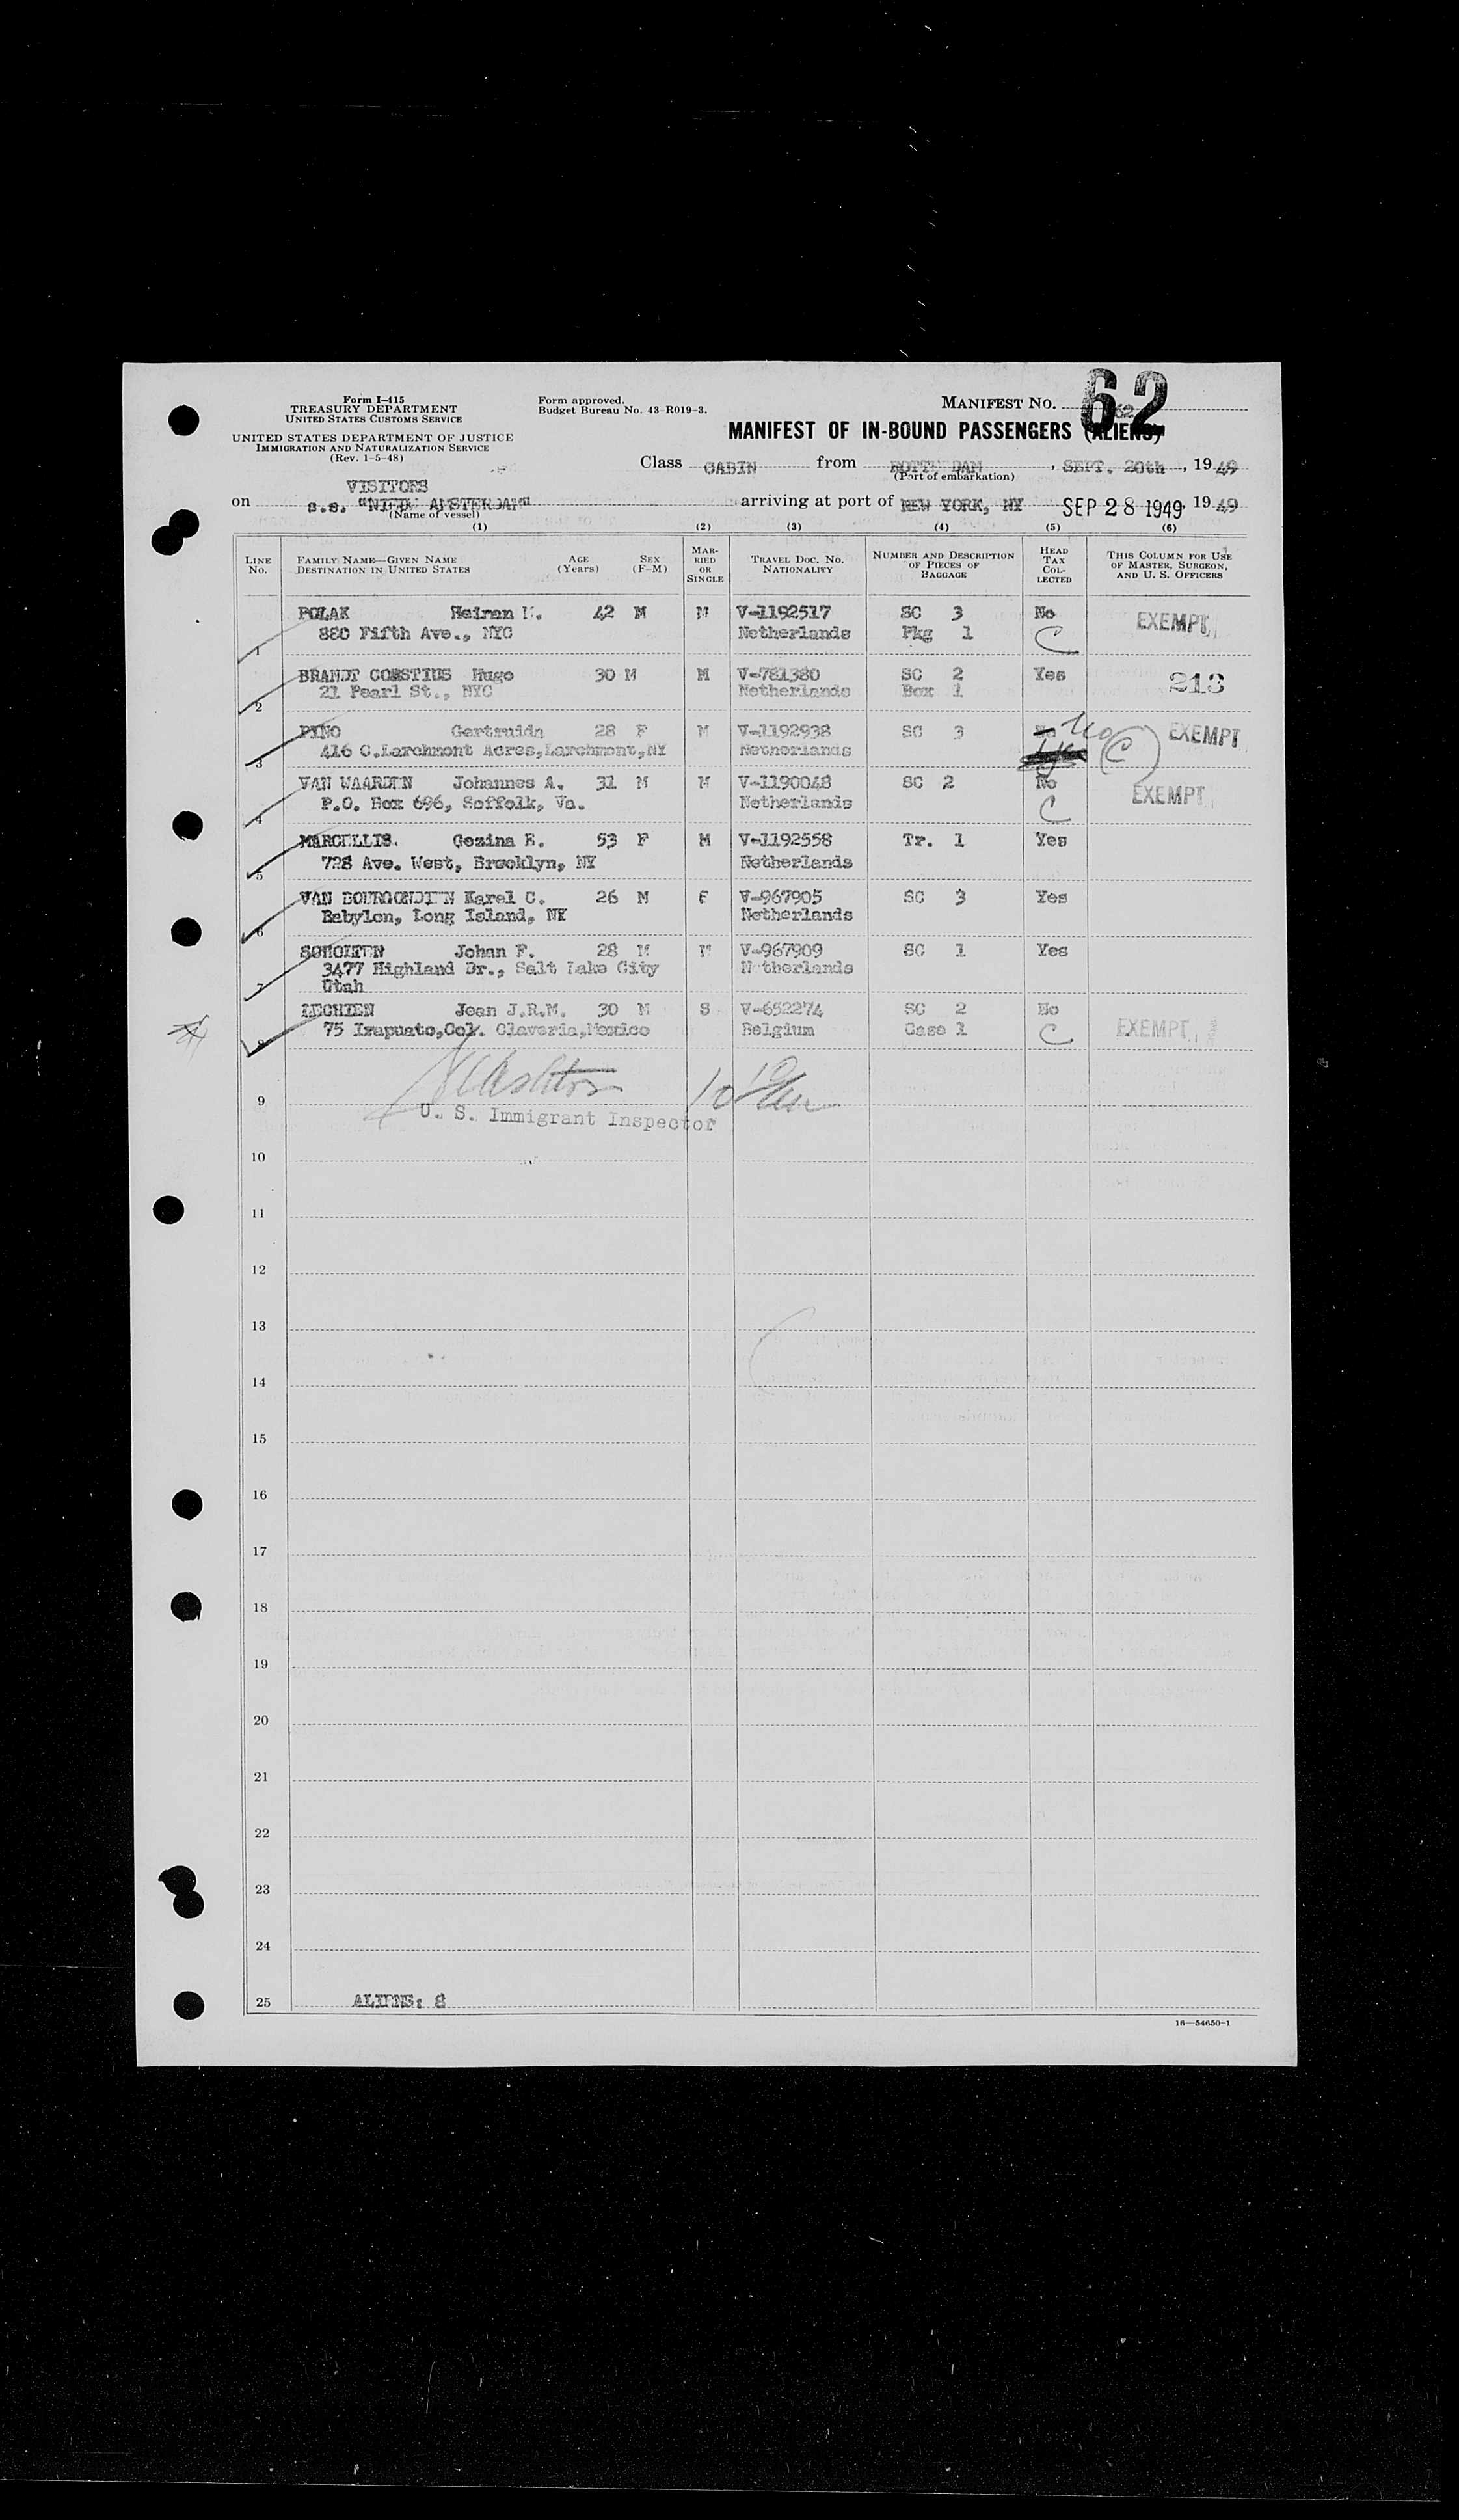 Form I-415
TREASURY DEPARTMENT
UNITED STATES CUSTOMS SERVICE
UNITED STATES DEPARTMENT OF JUSTICE
IMMIGRATION AND NATURALIZATION SERVICE
(Rev. 1-5-48)
Form approved.
Budget Bureau No. 43-R019-3.
MANIFEST NO. 62
62
MANIFEST OF IN-BOUND PASSENGERS (ALIENS)
Class CABIN from ROTTERDAM, SEPT. 20th, 1949
(Port of embarkation)
VISITORS
on s.s. "NIEUW AMSTERDAM" arriving at port of NEW YORK, NY SEP 28 1949, 1949
(Name of vessel)
(1) (2) (3) (4) (5) (6)
LINE No. FAMILY NAME—GIVEN NAME DESTINATION IN UNITED STATES AGE (Years) SEX (F-M) MARRIED OR SINGLE TRAVEL DOC. NO. NATIONALITY NUMBER AND DESCRIPTION OF PIECES OF BAGGAGE HEAD TAX COLLECTED THIS COLUMN FOR USE OF MASTER, SURGEON, AND U. S. OFFICERS
POLAK 42 M M V-1192517 SC 3 No EXEMPT
1 880 Fifth Ave., NYC Netherlands Pkg 1 C
BRANDT CORSTIUS Hugo 30 M M V-781380 SC 2 Yes 213
2 21 Pearl St., NYC Netherlands Box 1
PINO Gertruida 28 F M V-1192938 SC 3 No EXEMPT
3 416 C.Larchmont Acres,Larchmont,NY Netherlands C
VAN WAARDEN Johannes A. 31 M M V-1190048 SC 2 No EXEMPT
4 P.O. Box 696, Soffolk, Va. Netherlands C
MARCELLIS. Gezina E. 53 F M V-1192558 Tr. 1 Yes
5 728 Ave. West, Brooklyn, NY Netherlands
VAN BOURGONDIEN Karel C. 26 M F V-967905 SC 3 Yes
6 Babylon, Long Island, NY Netherlands
SCHOLTEN Johan F. 28 M M V-967909 SC 1 Yes
3477 Highland Dr., Salt Lake City Netherlands
7 Utah
LECHIEN Jean J.R.M. 30 M S V-652274 SC 2 No EXEMPT
8 75 Irapuato,Col. Claveria,Mexico Belgium Case 1 C
9
U. S. Immigrant Inspector
10
11
12
13
14
15
16
17
18
19
20
21
22
23
24
25 ALIENS: 8
16—54650-1